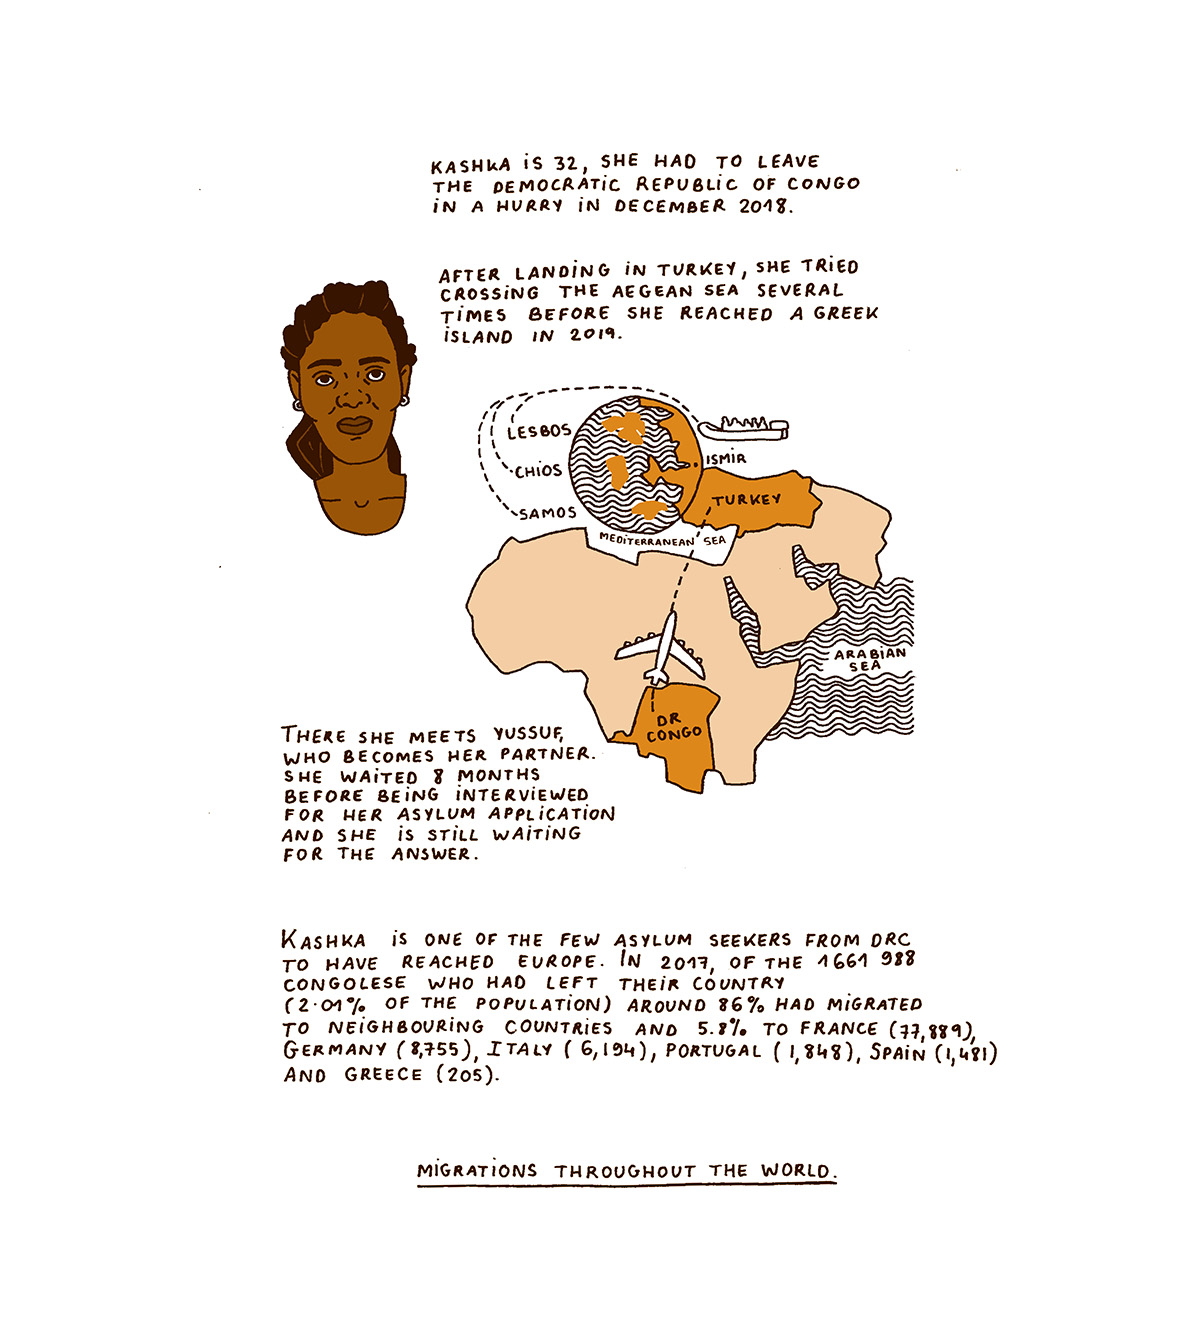 KASHKA iS 32, SHE HAD TO LEAVE
THE DEMOCRATiC REPUBLiC OF CONGO
iN A HURRY iN DECEMBER 2018.
AFTER LANDiNG iN TURKEY, SHE TRiED
CROSSING THE AEGEAN SEA SEVERAL
TiMES BEFORE SHE REACHED A GREEK
iSLAND IN 2019.
LESBOS
CHiOS
SAMOS
ISMiR
TURKEY
MEDiTERRANEAN SEA
ARABiAN
SEA
DR
CONGO
THERE SHE MEETS YUSSUF,
WHO BECOMES HER PARTNER.
SHE WAiTED 8 MONTHS
BEFORE BEiNG iNTERViEWED
FOR HER ASYLUM APPLiCATiON
AND SHE iS STiLL WAiTiNG
FOR THE ANSWER.
KASHKA iS ONE OF THE FEW ASYLUM SEEKERS FROM DRC
TO HAVE REACHED EUROPE. IN 2017, OF THE 1661 988
CONGOLESE WHO HAD LEFT THEiR COUNTRY
(2.01% OF THE POPULATiON) AROUND 86% HAD MiGRATED
TO NEiGHBOURiNG COUNTRiES AND 5.8% TO FRANCE (77,889),
GERMANY (8,755), ITALY (6,194), PORTUGAL (1,848), SPAiN (1,481)
AND GREECE (205).
MiGRATiONS THROUGHOUT THE WORLD.